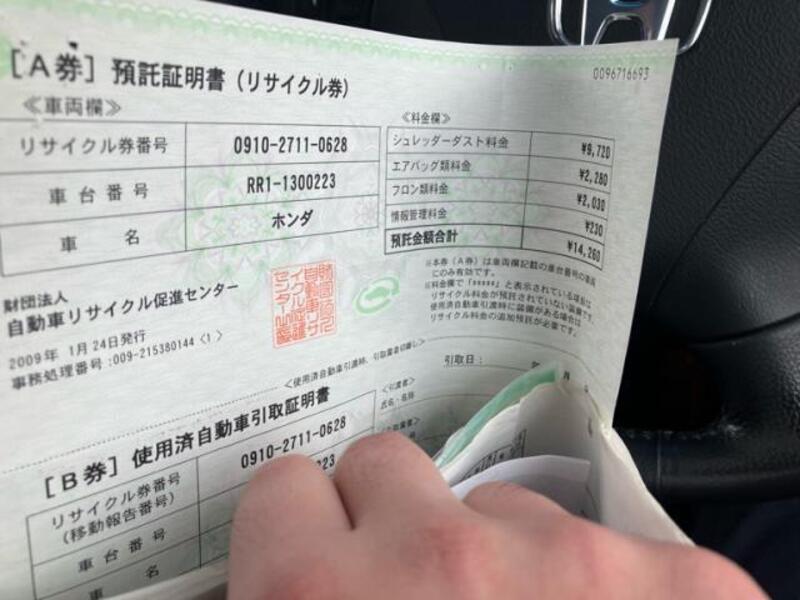 0096716693
[A券] 預託証明書（リサイクル券）
≪車両欄≫
リサイクル券番号 0910-2711-0628
車台番号 RR1-1300223
車名 ホンダ
≪料金欄≫
シュレッダーダスト料金 ¥9,720
エアバッグ類料金 ¥2,280
フロン類料金 ¥2,030
情報管理料金 ¥230
預託金額合計 ¥14,260
※本券（A券）は車両欄記載の車台番号の車両
にのみ有効です。
※料金欄で「*****」と表示されている項目は
リサイクル料金が預託されていない装備です。
使用済自動車引渡時に装備がある場合は
リサイクル料金の追加預託が必要です。
財団法人
自動車リサイクル促進センター
2009年 1月24日発行
事務処理番号:009-215380144〈1〉
≪使用済自動車引渡時、引取業者切離し≫
引取日：
[B券] 使用済自動車引取証明書
≪引渡者≫
氏名・名称
リサイクル券番号 0910-2711-0628
(移動報告番号)
車台番号
車名